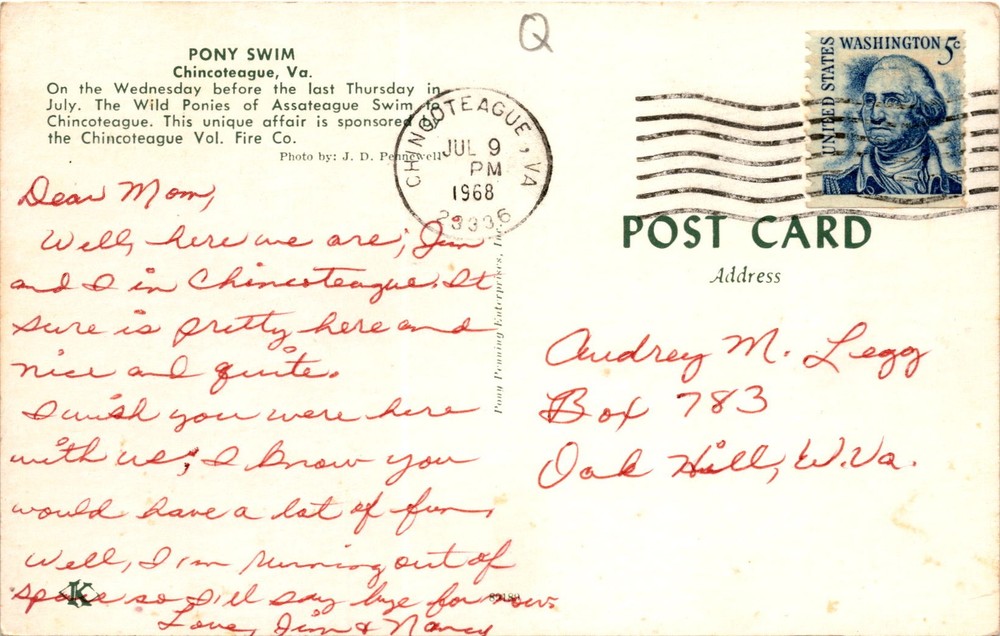 Q
PONY SWIM
Chincoteague, Va.
On the Wednesday before the last Thursday in
July. The Wild Ponies of Assateague Swim to
Chincoteague. This unique affair is sponsored by
the Chincoteague Vol. Fire Co.
Photo by: J. D. Pennewell
CHINCOTEAGUE, VA
JUL 9
PM
1968
23336
UNITED STATES
WASHINGTON 5c
POST CARD
Address
Dear Mom,
Well, here we are; Jim
and I in Chincoteague. It
sure is pretty here and
nice and quite.
I wish you were here
with us; I know you
would have a lot of fun.
Well, I'm running out of
space so I'll say bye for now.
Love, Jim & Nancy
Pony Penning Enterprises, Inc.
Audrey M. Legg
Box 783
Oak Hill, W.Va.
K